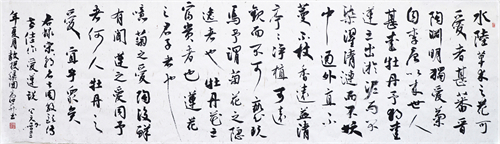 水陸草木之花可
愛者甚蕃晉
陶淵明獨愛菊
自李唐以來世人
甚愛牡丹予獨愛
蓮之出淤泥而不
染濯清漣而不妖
中通外直不
蔓不枝香遠益清
亭亭淨植可遠
觀而不可褻玩
焉予謂菊花之隱
逸者也牡丹花之
富貴者也蓮花
之君子者也
噫菊之愛陶後鮮
有聞蓮之愛同予
者何人牡丹之
愛宜乎眾矣
宋朝名士周敦頤
愛蓮說